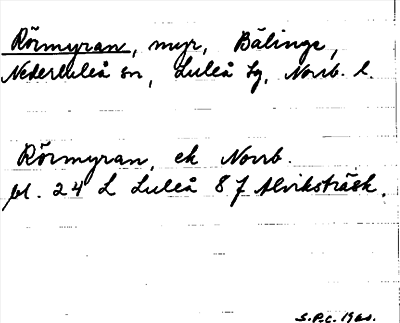 Rörmyran, myr, Bälinge,
Nederluleå sn, Luleå tg, Norrb. l.
Rörmyran, ek Norrb.
bl. 24 L Luleå 8 f Alviksträsk.
S.P.C. 1960.